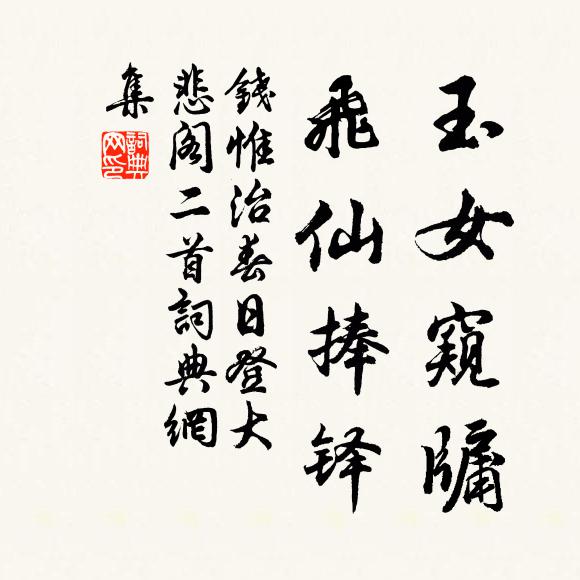 玉女窺牖
飛仙捧铎
錢惟治春日登大
悲阁二首詞典網
集
詞典
网印